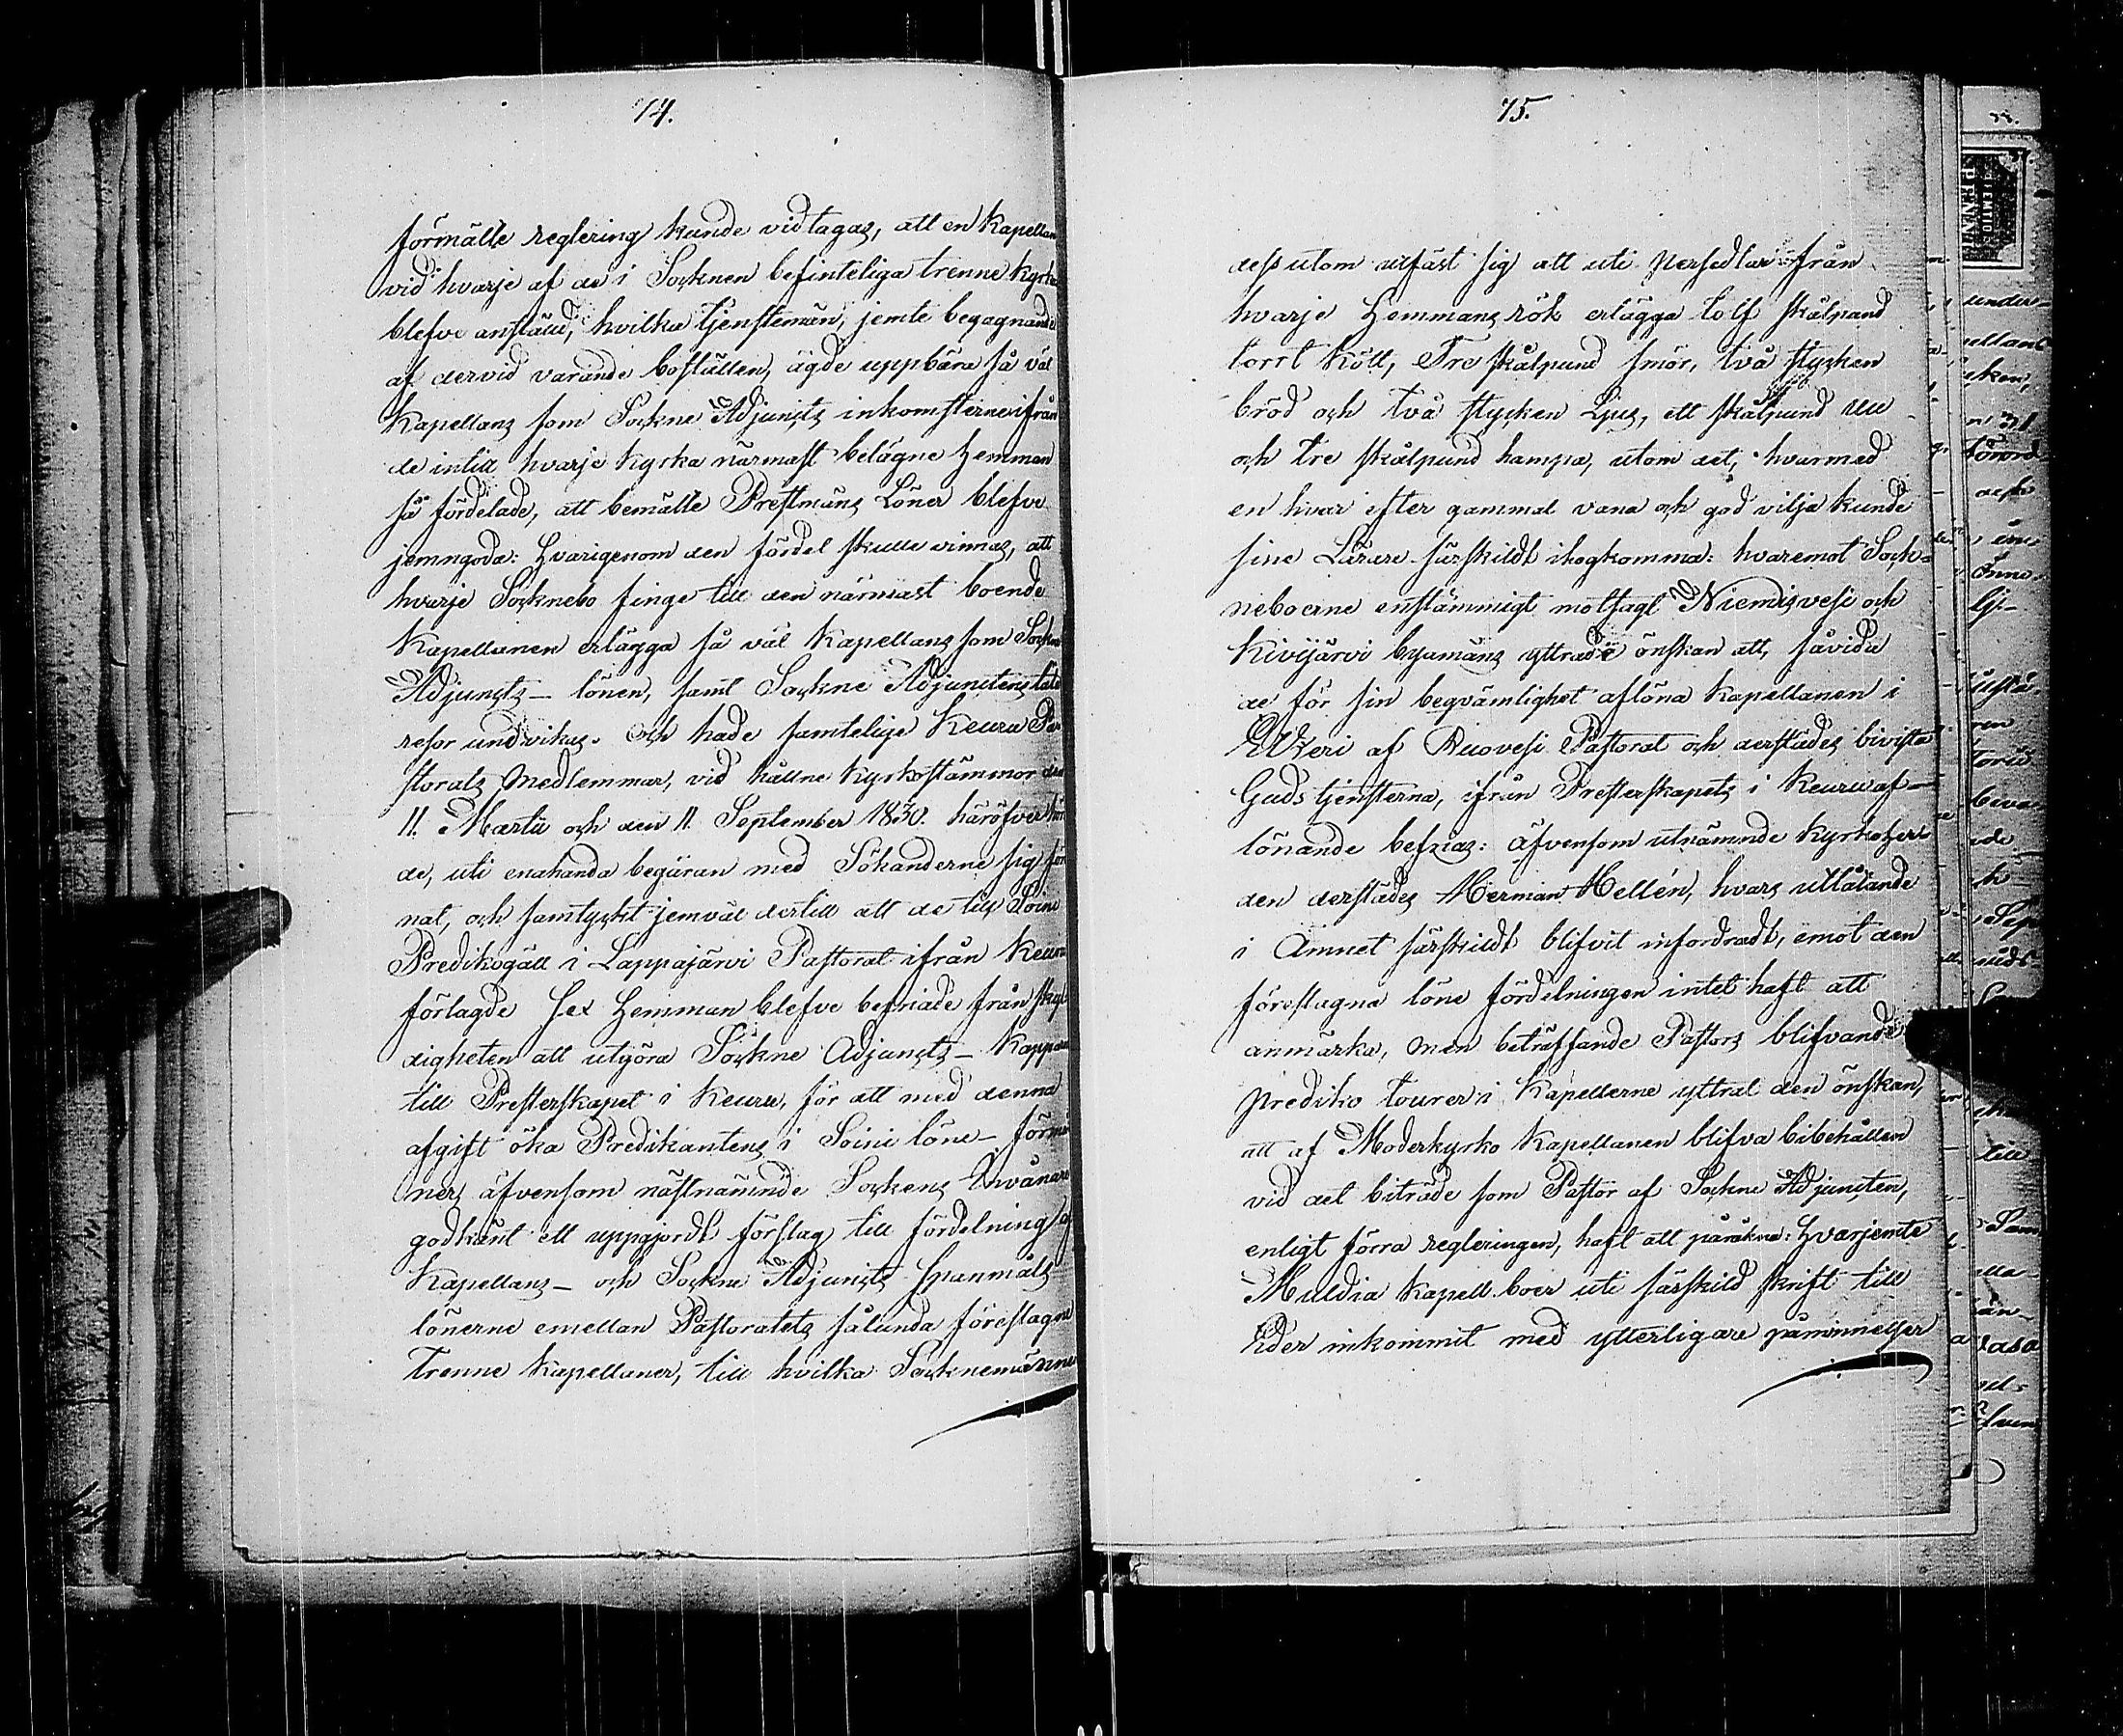 74.
förmälte reglering kunde vidtagas, att en Kapellan
vid hvarje af de i Socknen befinteliga trenne kyrko
blefve anställd, hvilka tjenstemän, jemte begagnande
af dervid varande boställen, ägde uppbära så väl
Kapellans som Sockne Adjuncts inkomsterne ifrån
de intill hvarje kyrka närmast belägne hemman
så fördelade, att bemälte Prestmäns Löner blefve
jemngoda: Hvarigenom den fördel skulle vinnas, att
hvarje Socknebo finge till den närmast boende
Kapellanen erlägga så väl Kapellans som Sockne
Adjuncts-lönen, samt Sockne Adjunctens
resor undvikas. Och hade samtelige Keuru Pa-
storats Medlemmar, vid hållne Kyrkostämmor den
11. Martii och den 11. September 1830. häröfver hör
de, uti enahanda begäran med Sökanderne sig före
nat, och samtyckt jemväl dertill att de till Soini
Predikogäll i Lappajärvi Pastorat ifrån Keuru
förlagde sex Hemman blefve befriade från skyl
digheten att utgöra Sockne Adjuncts- Kappar
till Presterskapet i Keuru, för att med denna
afgift öka Predikantens i Soini löne-förmå
ner, äfvensom nästnämnde Sockens Invånare
godkänt ett uppgjordt förslag till fördelning af
Kapellans- och Sockne Adjuncts Spanmåls
lönerne emellan Pastoratets sålunda föreslagne
Trenne Kapellaner, till hvilka Socknemännen
75.
dessutom utfäst sig att uti persedlar från
hvarje Hemmans rök erlägga tolf skålpund
torrt kött, Tre skålpund smör, två stycken
bröd och två stycken Ljus, ett skålpund ull
och tre skålpund hampa, utom det, hvarmed
en hvar efter gammal vana och god vilja kunde
sine Lärare särskildt ihogkomma: hvaremot Sock-
neboerne enstämmigt motsagt Niemisvesi och
Kivijärvi byamäns yttrade önskan att, såvida
de för sin beqvämlighet aflöna Kapellanen i
Etzeri af Ruovesi Pastorat och derstädes bivista
Gudstjensterna, ifrån Presterskapets i Keuru af-
lönande befrias: äfvensom utnämnde Kyrkoher-
den derstädes Herman Hellén, hvars utlåtande
i Ämnet särskildt blifvit infordradt, emot den
föreslagna löne fördelningen intet haft att
anmärka, men beträffande Pastors blifvande
prediko tourer i Kapellerne yttrat den önskan,
att af Moderkyrko Kapellanen blifva bibehållen
vid det biträde som Pastor af Sockne Adjuncten,
enligt förra regleringen, haft att påräkna: Hvarjemte
Multia Kapell boer uti särskild skrift till
Eder inkommit med ytterligare påminnelser